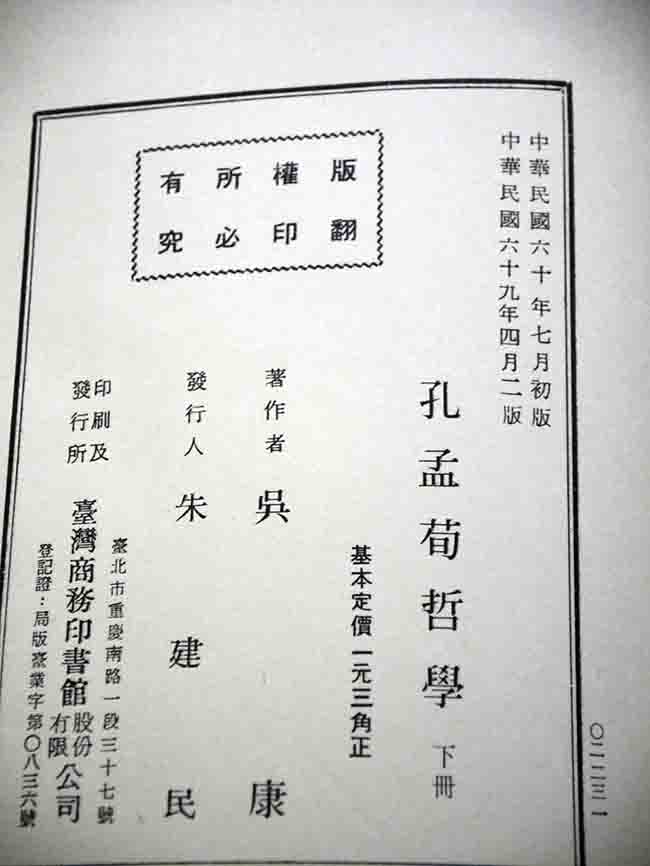 〇二二三一
中華民國六十年七月初版
中華民國六十九年四月二版
孔孟荀哲學 下冊
基本定價一元三角正
著作者 吳康
發行人 朱建民
印刷及發行所 臺灣商務印書館股份有限公司
臺北市重慶南路一段三十七號
登記證：局版臺業字第〇八三六號
版權所有
翻印必究